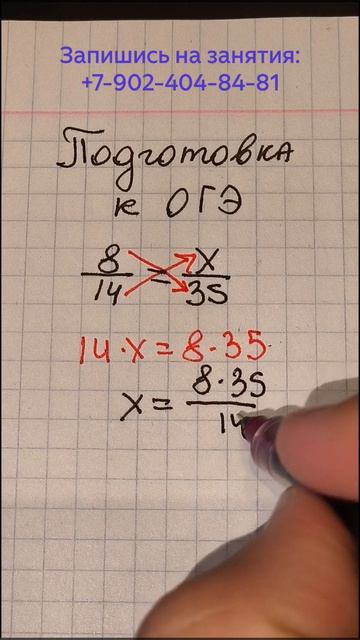 Запишись на занятия:
+7-902-404-84-81
Подготовка
к ОГЭ
8/14 = x/35
14·x = 8·35
x = 8·35/14